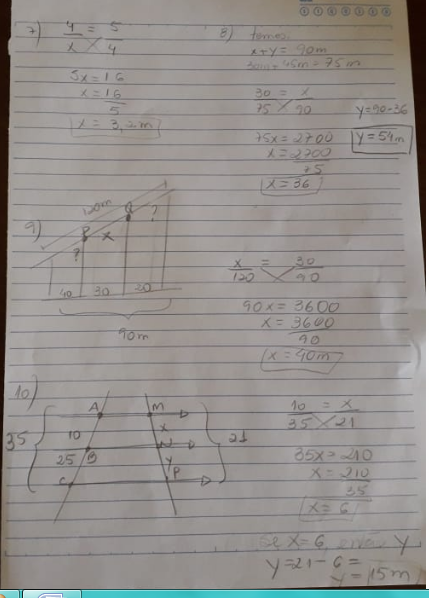 7) 4/x = 5/4
5x = 16
x = 16/5
x = 3,2 m
8) temos:
x + y = 90m
30m + 45m = 75m
30/75 = x/90
75x = 2700
x = 2700/75
x = 36
y = 90 - 36
y = 54m
9)
120m
P
x
Q
?
?
40 30 20
90m
x/120 = 30/90
90x = 3600
x = 3600/90
x = 40m
10)
A M
35 10 x 21
B N
25 y
C P
10/35 = x/21
35x = 210
x = 210/35
x = 6
se x = 6, y
y = 21 - 6 =
y = 15m